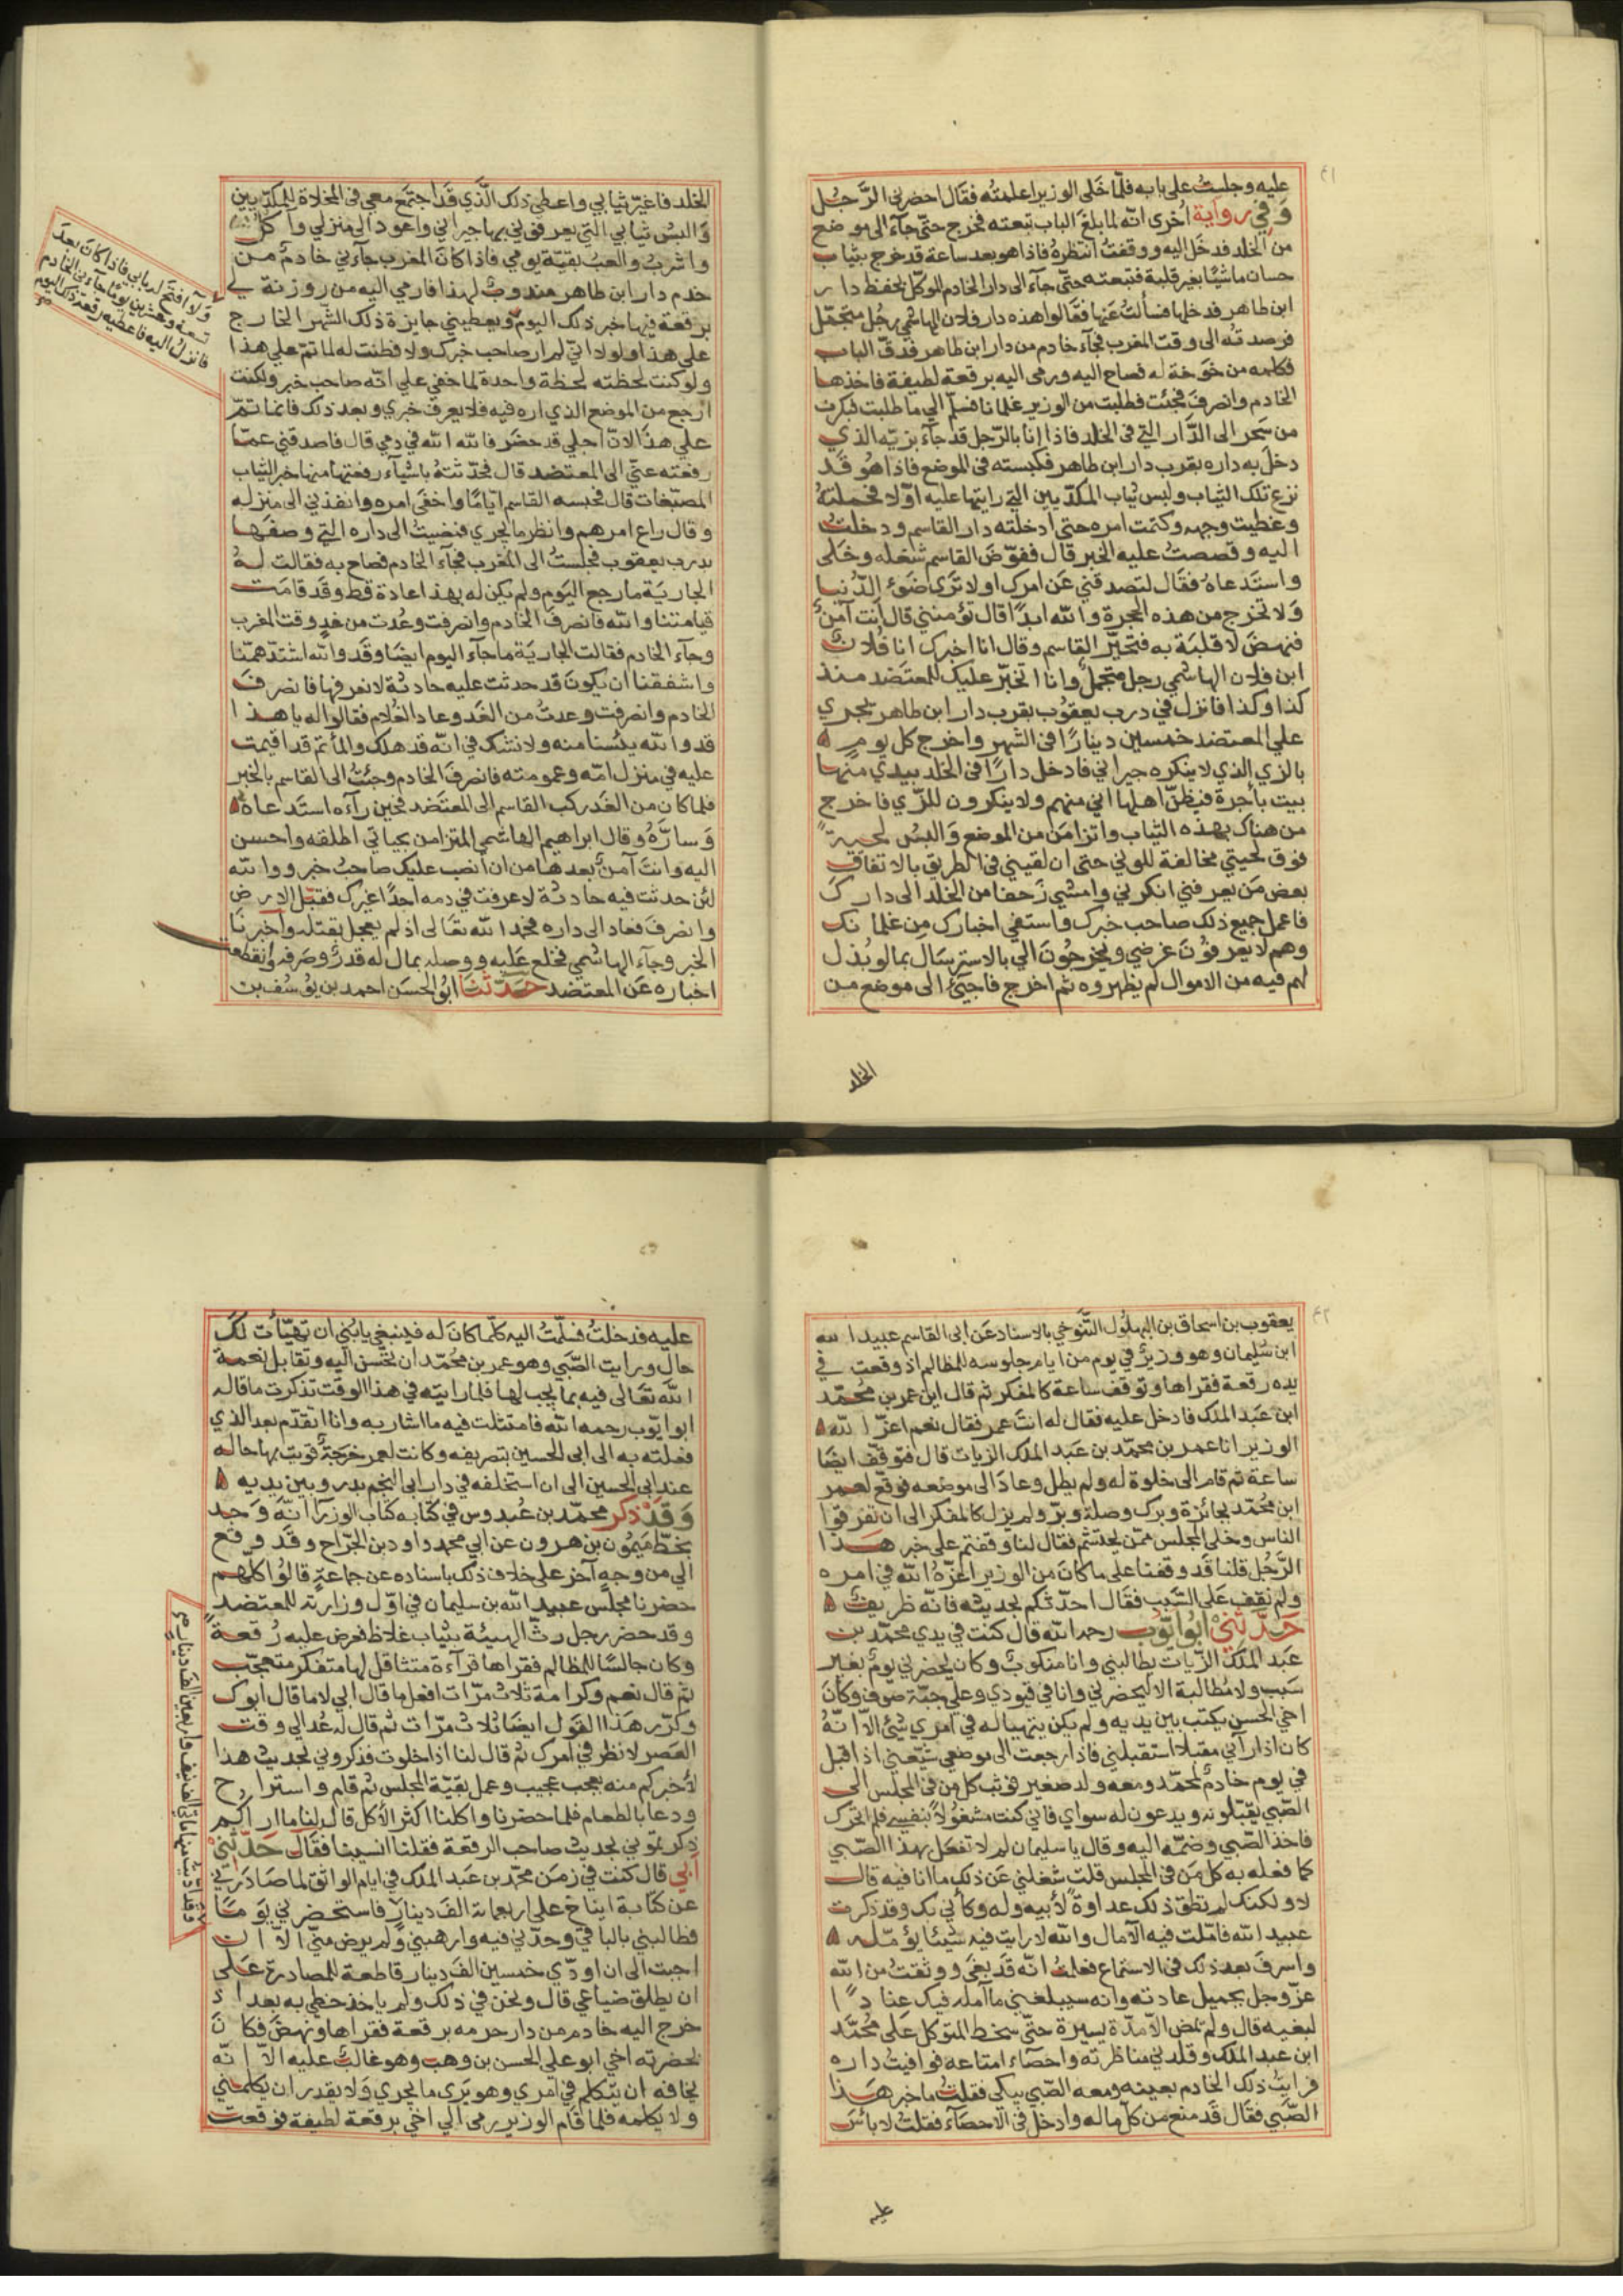 ٤١
عليه وجلست على بابه فلمّا خلى الوزير اعلمته فقال احضرني الرّجل
وفي رواية اخرى انّه لما بلغ الباب تبعته فخرج حتّى جآء الى موضع
من الخلد فدخل اليه ووقفت انتظره فاذا هو بعد ساعة قد خرج بثياب
حسان ماشيًا بغير قلبة فتبعته حتّى جآء الى دار الخادم الموكّل بحفظ دار
ابن طاهر فدخلها فسألت عنها فقالوا هذه دار فلان الهاشمي رجل متجمّل
فرصدته الى وقت المغرب فجآء خادم من دار ابن طاهر فدقّ الباب
فكلمه من خوخة له فصاح اليه ورمى اليه برقعة لطيفة فاخذها
الخادم وانصرف فجئت فطلبت من الوزير غلمانا فسلّم الي ما طلبت فبكرت
من سحر الى الدّار الّتي في الخلد فاذا انا بالرّجل قد جآء بزيّه الذي
دخل به داره بقرب دار ابن طاهر فكبسته في الموضع فاذا هو قد
نزع تلك الثياب ولبس ثياب المكدّيين التي رايتها عليه اوّلا فحملته
وغطيت وجهه وكتمت امره حتى ادخلته دار القاسم ودخلت
اليه وقصصت عليه الخبر قال ففوّض القاسم شغله وخلى
واستدعاه فقال لتصدقني عن امرك او لا ترى ضوء الدّنيا
ولا تخرج من هذه الحجرة والله ابدًا قال تؤمنني قال انت آمن
فنهض لا قلبة به فتحيّر القاسم وقال انا اخبرك انا فلان
ابن فلان الهاشمي رجل متجمل وانا اتخبّر عليك للمعتضد منذ
كذا وكذا فانزل في درب يعقوب بقرب دار ابن طاهر يجري
علي المعتضد خمسين دينارًا في الشهر واخرج كل يوم
بالزي الذي لا ينكره جيراني فادخل دارًا في الخلد بيدي منها
بيت بأجرة فيظنّ اهلها اني منهم ولا ينكرون للزّي فاخرج
من هناك بهذه الثياب واتزامن من الموضع والبس لحية
فوق لحيتي مخالفة للوني حتى ان لقيني في الطريق بالاتفاق
بعض من يعرفني انكرني وامشي زحفا من الخلد الى دارك
فاعمل جميع ذلك صاحب خبرك واستقي اخبارك من غلمانك
وهم لا يعرفون غرضي ويخرجون الي بالاسترسال بما لو بذل
لهم فيه من الاموال لم يظهروه ثم اخرج فاجيئ الى موضع من
الخلد
الخلد فاغيّر ثيابي واعطي ذلك الّذي قد اجتمع معي في المخلاة للمكدّيين
والبس ثيابي التي يعرفوني بها جيراني واعود الى منزلي وآكل
واشرب والعب بقيّة يومي فاذا كان المغرب جآءني خادم من
خدم دار ابن طاهر مندوب لهذا فارمي اليه من روزنة لي
برقعة فيها خبر ذلك اليوم ويعطيني جايزة ذلك الشهر الخارج
علي هذا ولولا انّي لم ار صاحب خبرك ولا فطنت له لما تمّ علي هذا
ولو كنت لحظته لحظة واحدة لما خفي علي انّه صاحب خبر ولكنت
ارجع من الموضع الذي اره فيه فلا يعرف خبري وبعد ذلك فانما تمّ
علي هذا لانّ اجلي قد حضر فالله الله في دمي قال فاصدقني عمّا
رفعته عنّي الى المعتضد قال فحدّثته باشيآء رفعتها منها خبر الثياب
المصبّغات قال فحبسه القاسم ايّامًا واخفى امره وانفذني الى منزله
وقال راع امرهم وانظر ما يجري فمضيت الى داره التي وصفها
بدرب يعقوب فجلست الى المغرب فجآء الخادم فصاح به فقالت له
الجارية ما رجع اليوم ولم يكن له بهذا عادة قط وقد قامت
قيامتنا والله فانصرف الخادم وانصرفت وعدت من غد وقت المغرب
وجآء الخادم فقالت الجارية ما جآء اليوم ايضًا وقد والله اشتدّ همّنا
واشفقنا ان يكون قد حدثت عليه حادثة لا نعرفها فانصرف
الخادم وانصرفت وعدت من الغد وعاد الغلام فقالوا له يا هذا
قد والله يئسنا منه ولا نشك في انّه قد هلك والمأتم قد اقيمت
عليه في منزل امّه وعمومته فانصرف الخادم وجئت الى القاسم بالخبر
فلما كان من الغد ركب القاسم الى المعتضد فحين رآه استدعاه
وسارّه وقال ابراهيم الهاشمي المتزامن بحياتي اطلقه واحسن
اليه وانت آمن بعدها من ان انصب عليك صاحب خبر ووالله
لئن حدثت فيه حادثة لا عرفت في دمه احدًا غيرك فقبّل الارض
وانصرف فعاد الى داره فحمد الله تعالى اذ لم يعجل بقتله وآخبرنا
الخبر وجآء الهاشمي فخلع عليه ووصله بمال له قدر وصرفه وانقطعه
اخباره عن المعتضد حدّثنا ابو الحسن احمد بن يوسف بن
ولا افتح له بابي فاذا كان بعد
تسعة وعشرين يومًا جآءني الخادم
فانزل اليه فاعطيه رقعة ذلك اليوم
٤٢
يعقوب بن اسحاق بن البهلول التّنوخي بالاسناد عن ابى القاسم عبيد الله
ابن سليمان وهو وزير في يوم من ايام جلوسه للمظالم اذ وقعت في
يده رقعة فقراها وتوقف ساعة كالمفكر ثم قال اين عمر بن محمّد
ابن عبد الملك فادخل عليه فقال له انت عمر فقال نعم اعزّ الله
الوزير انا عمر بن محمّد بن عبد الملك الزيات قال فتوقّف ايضا
ساعة ثم قام الى خلوة له ولم يطل وعاد الى موضعه فوقّع لعمر
ابن محمّد بجائزة وبرك وصلة وبرّ ولم يزل كالمفكر الى ان تفرقوا
الناس وخلى المجلس ممّن يحتشم فقال لنا وقفتم على خبر هذا
الرّجل قلنا قد وقفنا على ما كان من الوزير اعزّه الله في امره
ولم نقف على السّبب فقال احدّثكم بحديثه فانّه ظريف
حدّثني ابو ايّوب رحمه الله قال كنت في يدي محمّد بن
عبد الملك الزّيات يطالبني وانا منكوب وكان يحضرني يوم بغير
سبب ولا مطالبة الا ليحضرني وانا في قيودي وعليّ جبّة صوف وكان
اخي الحسن يكتب بين يديه ولم يكن يتهيا له في امري شئ الّا انّه
كان اذا رآني مقبلا استقبلني فاذا رجعت الى موضعي شيّعني اذ اقبل
في يوم خادم لمحمّد ومعه ولد صغير فوثب كل من في المجلس الى
الصّبي يقبّلونه ويدعون له سواي فاني كنت مشغولا بنفسي فلم اتحرك
فاخذ الصّبي وضمّه اليه وقال يا سليمان لم لا تفعل بهذا الصّبي
كما فعله به كل من في المجلس قلت شغلني عن ذلك ما انا فيه قال
لا ولكنك لم تطق ذلك عداوة لأبيه وله وكأني بك وقد ذكرت
عبيد الله فامّلت فيه الآمال والله لا رايت فيه شيئا يؤمّله
واسرف بعد ذلك في الاسماع فعلمت انّه قد بغى ووثقت من الله
عزّ وجل بجميل عادته وانه سيبلغني ما آمله فيك عنادًا
لبغيه قال ولم تمض الّا مدّة يسيرة حتّى سخط المتوكل على محمّد
ابن عبد الملك وقلدني مناظرته واحصآء امتاعه فوافيت داره
فرايت ذلك الخادم بعينه ومعه الصّبي يبكي فقلت ما خبر هذا
الصّبي فقال قد منع من كل ماله وادخل في الاحصآء فقلت لا بأس
عليه
عليه فدخلت فسلّمت اليه كلّما كان له فينبغي يا بني ان تهيّأت لك
حال ورايت الصّبي وهو عمر بن محمّد ان تحسن اليه وتقابل نعمة
الله تعالى فيه بما يجب لها فلما رايته في هذا الوقت تذكرت ما قاله
ابو ايّوب رحمه الله فامتثلت فيه ما اشار به وانا اتقدّم بعد الذي
فعلته به الى ابى الحسين بتصريفه وكانت لعمر خرجة قويت بها حاله
عند ابى الحسين الى ان استخلفه في دار ابى النجم بدر وبين يديه
وقد ذكر محمّد بن عبدوس في كتابه كتاب الوزرآ انّه وجد
بخطّ ميمون بن هرون عن ابي محمد داود بن الجرّاح وقد وقع
الي من وجه آخر على خلاف ذلك باسناده عن جماعة قالوا كلهم
حضرنا مجلس عبيد الله بن سليمان في اوّل وزارته للمعتضد
وقد حضر رجل رثّ الهيئة بثياب غلاظ فعرض عليه رقعة
وكان جالسًا للمظالم فقراها قرآءة متثاقل لها متفكر متعجّب
ثم قال نعم وكرامة ثلاث مرّات افعل ما قال ابي لا ما قال ابوك
وكرّر هذا القول ايضا ثلاث مرّات ثم قال له عُد الي وقت
العصر لانظر في امرك ثم قال لنا اذا خلوت فذكروني بحديث هذا
لأخبركم منه بعجب عجيب وعمل بقيّة المجلس ثم قام واستراح
ودعا بالطعام فلما حضرنا واكلنا اكثر الأكل قال لنا ما اراكم
ذكرتموني بحديث صاحب الرقعة فقلنا انسينا فقال حدّثني
ابي قال كنت في زمن محمّد بن عبد الملك في ايام الواثق لما صادرني
عن كتابة ايتاخ على اربعماية الف دينار فاستحضرني يومًا
فطالبني بالباقي وحدّني فيه وارهبني ولم يرض منّي الّا ان
اجبت الى ان اودّي خمسين الف دينار قاطعة للمصادرة على
ان يطلق ضياعي قال ونحن في ذلك ولم ياخذ خطي به بعد اذ
خرج اليه خادم من دار حرمه برقعة فقراها ونهض فكان
بحضرته اخي ابو علي الحسن بن وهب وهو غالب عليه الّا انّه
يخافه ان يتكلم في امري وهو يرى ما يجري ولا يقدر ان يكلمني
ولا يكلمه فلما قام الوزير رمى الي اخي برقعة لطيفة فوقعت